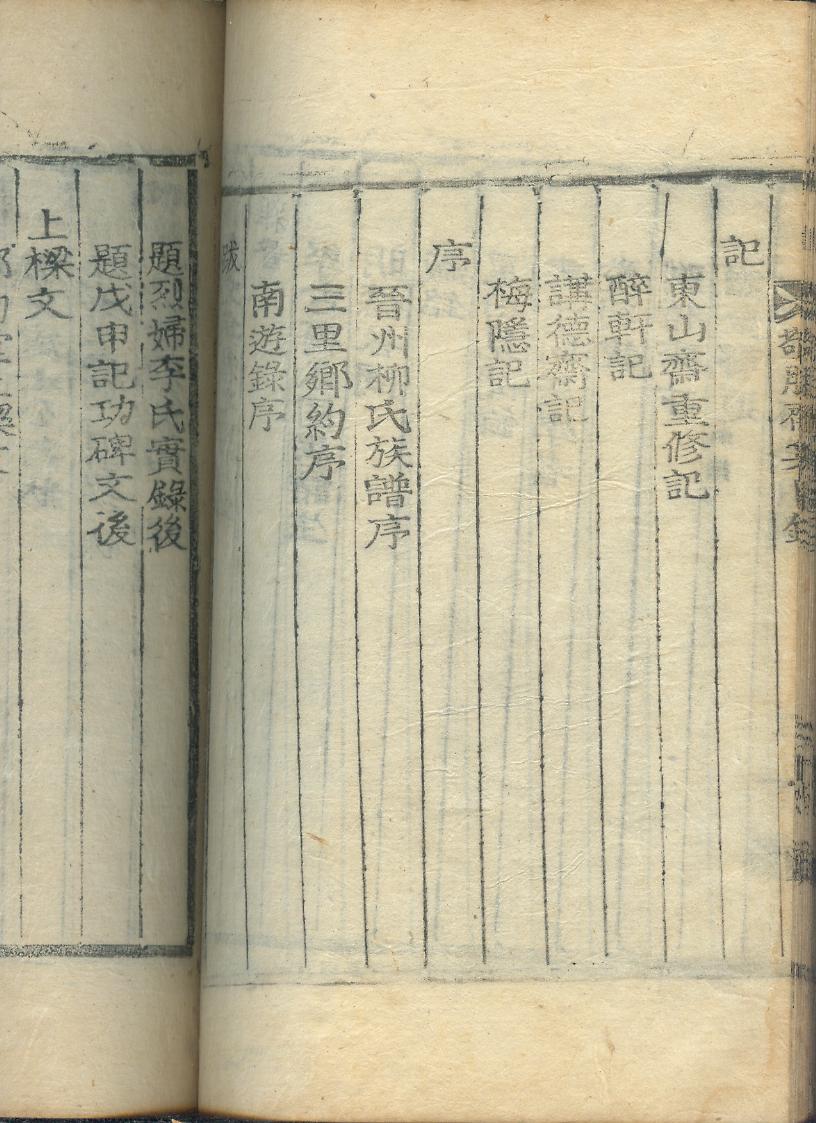 集目錄
記
東山齋重修記
醉軒記
謹德齋記
梅隱記
序
晉州柳氏族譜序
三里鄉約序
南遊錄序
跋
題烈婦李氏實錄後
題戊申記功碑文後
上樑文